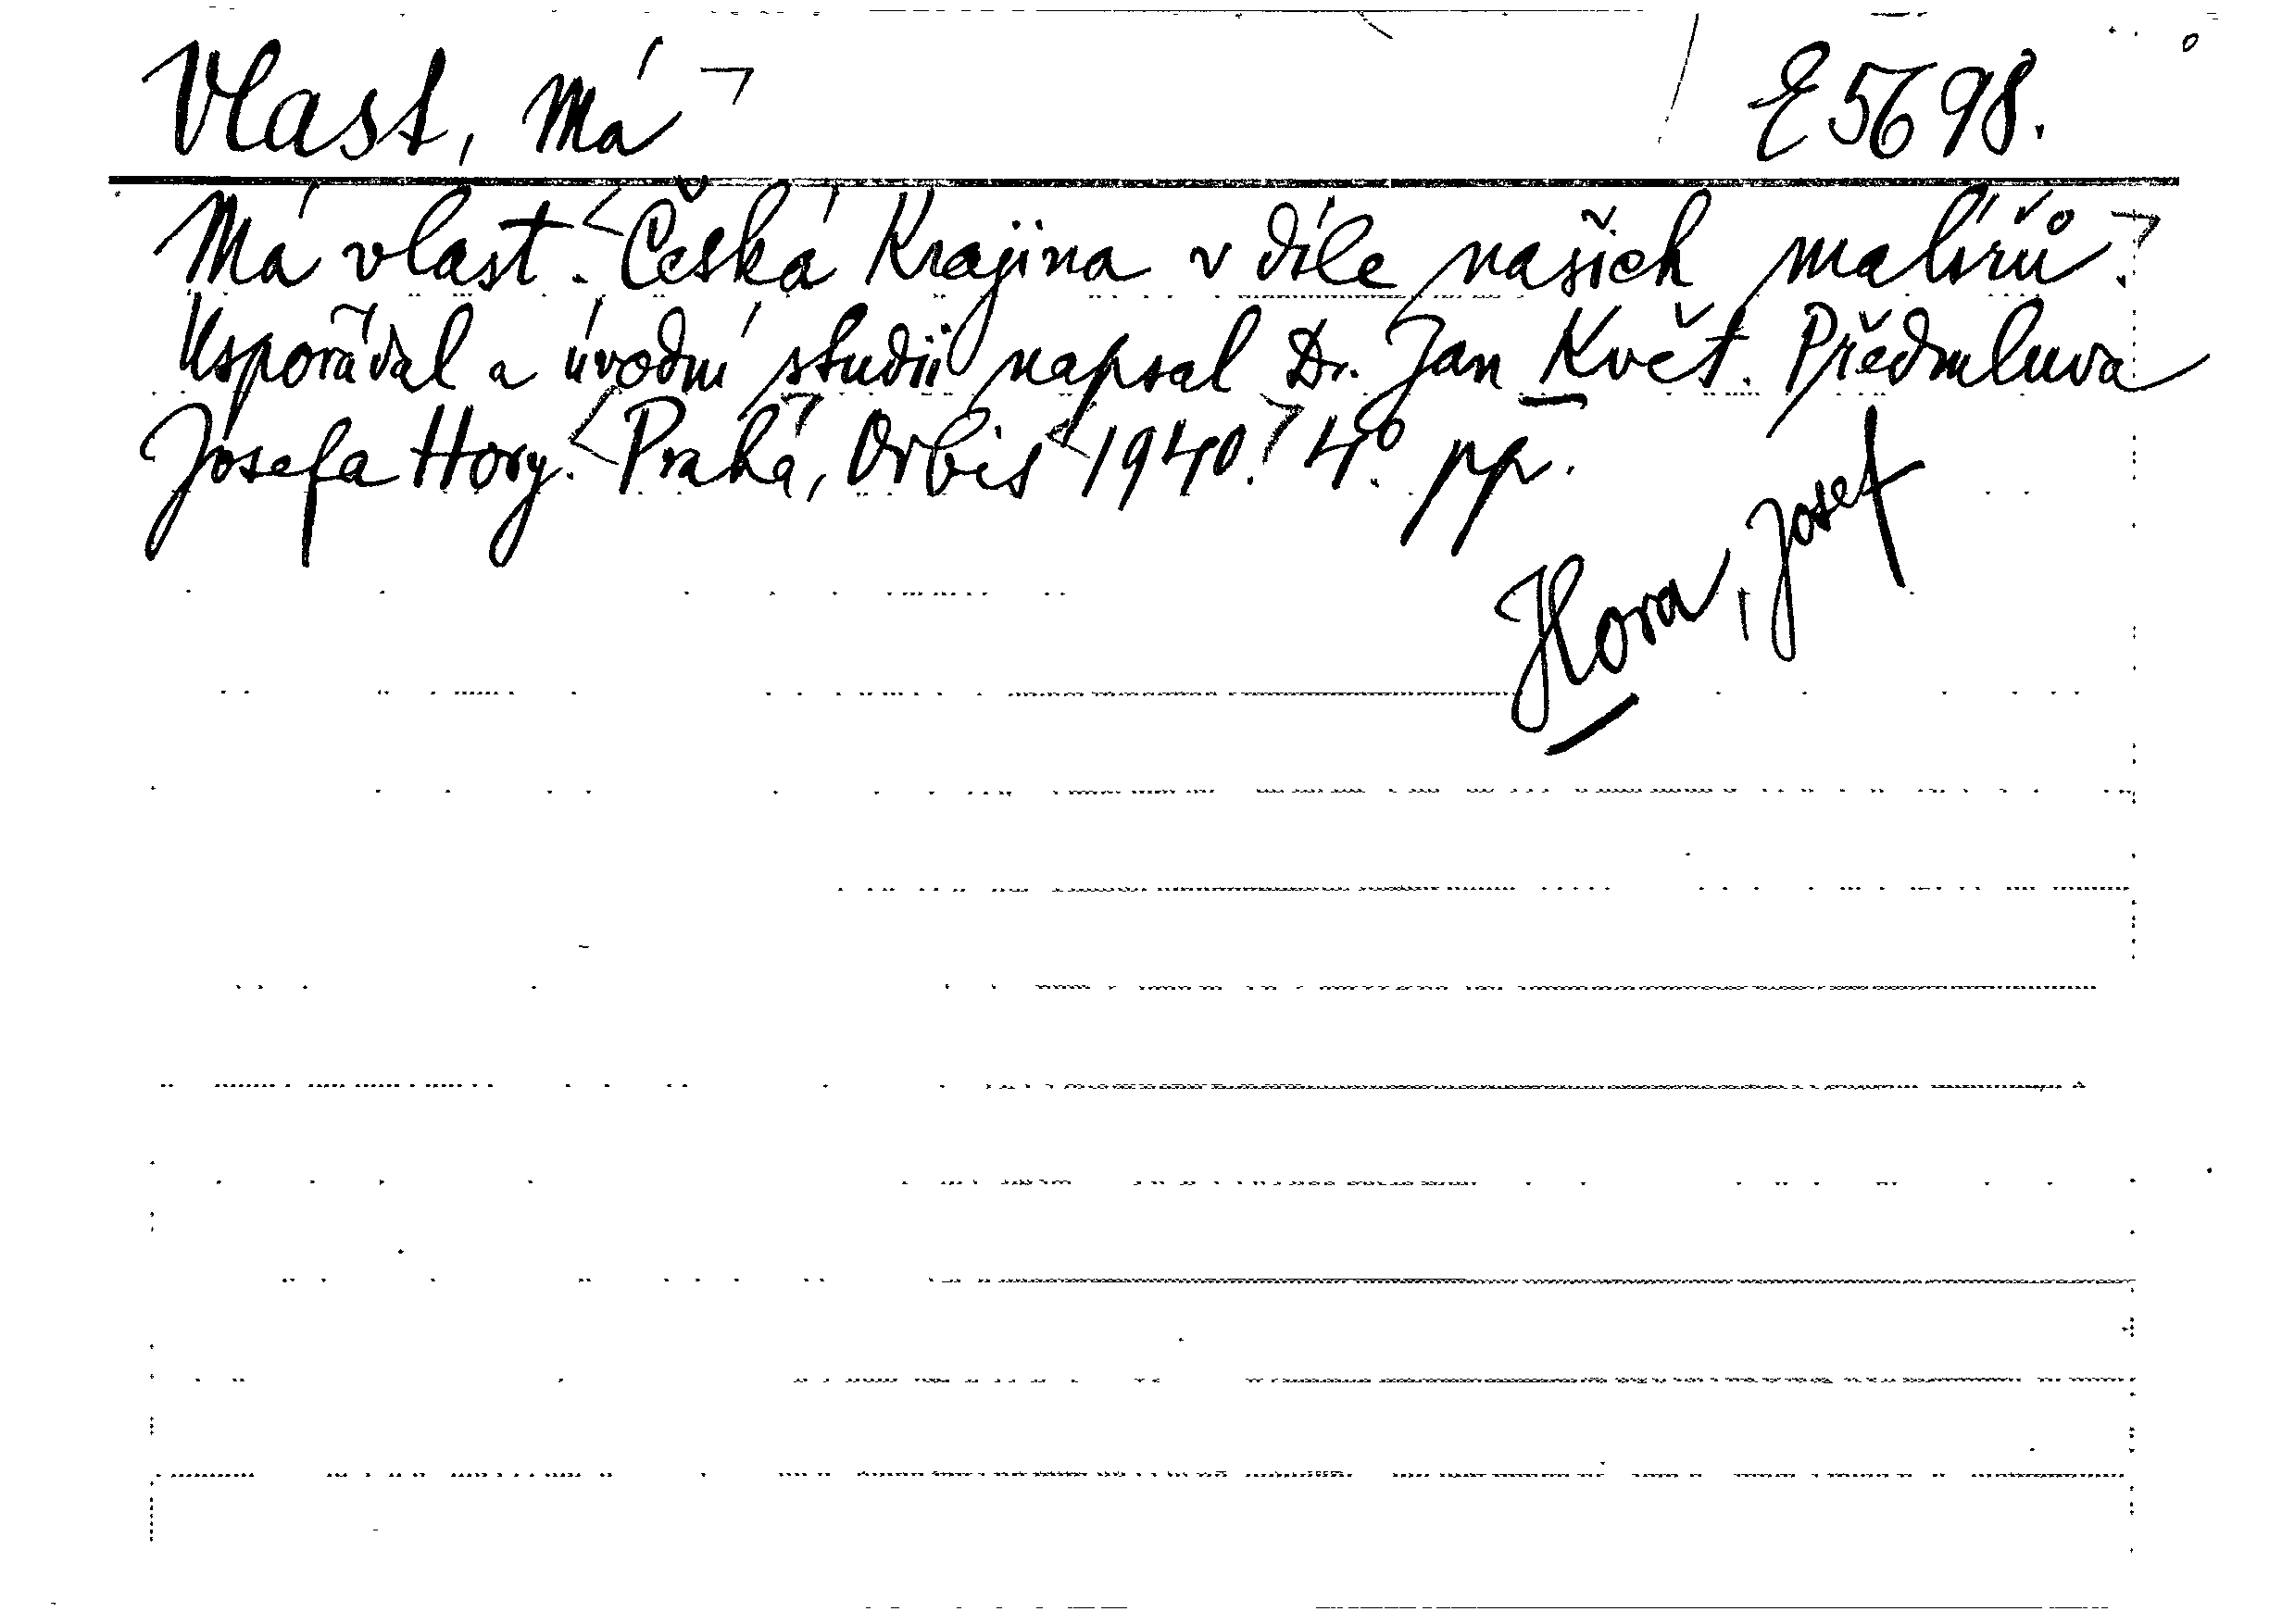 Vlast, Má
E 5698.
Má vlast. Česká Krajina v díle našich malířů.
Uspořádal a úvodní studii napsal Dr. Jan Květ. Předmluva
Josefa Hory. Praha, Orbis 1940. 4° pp.
Hora, Josef